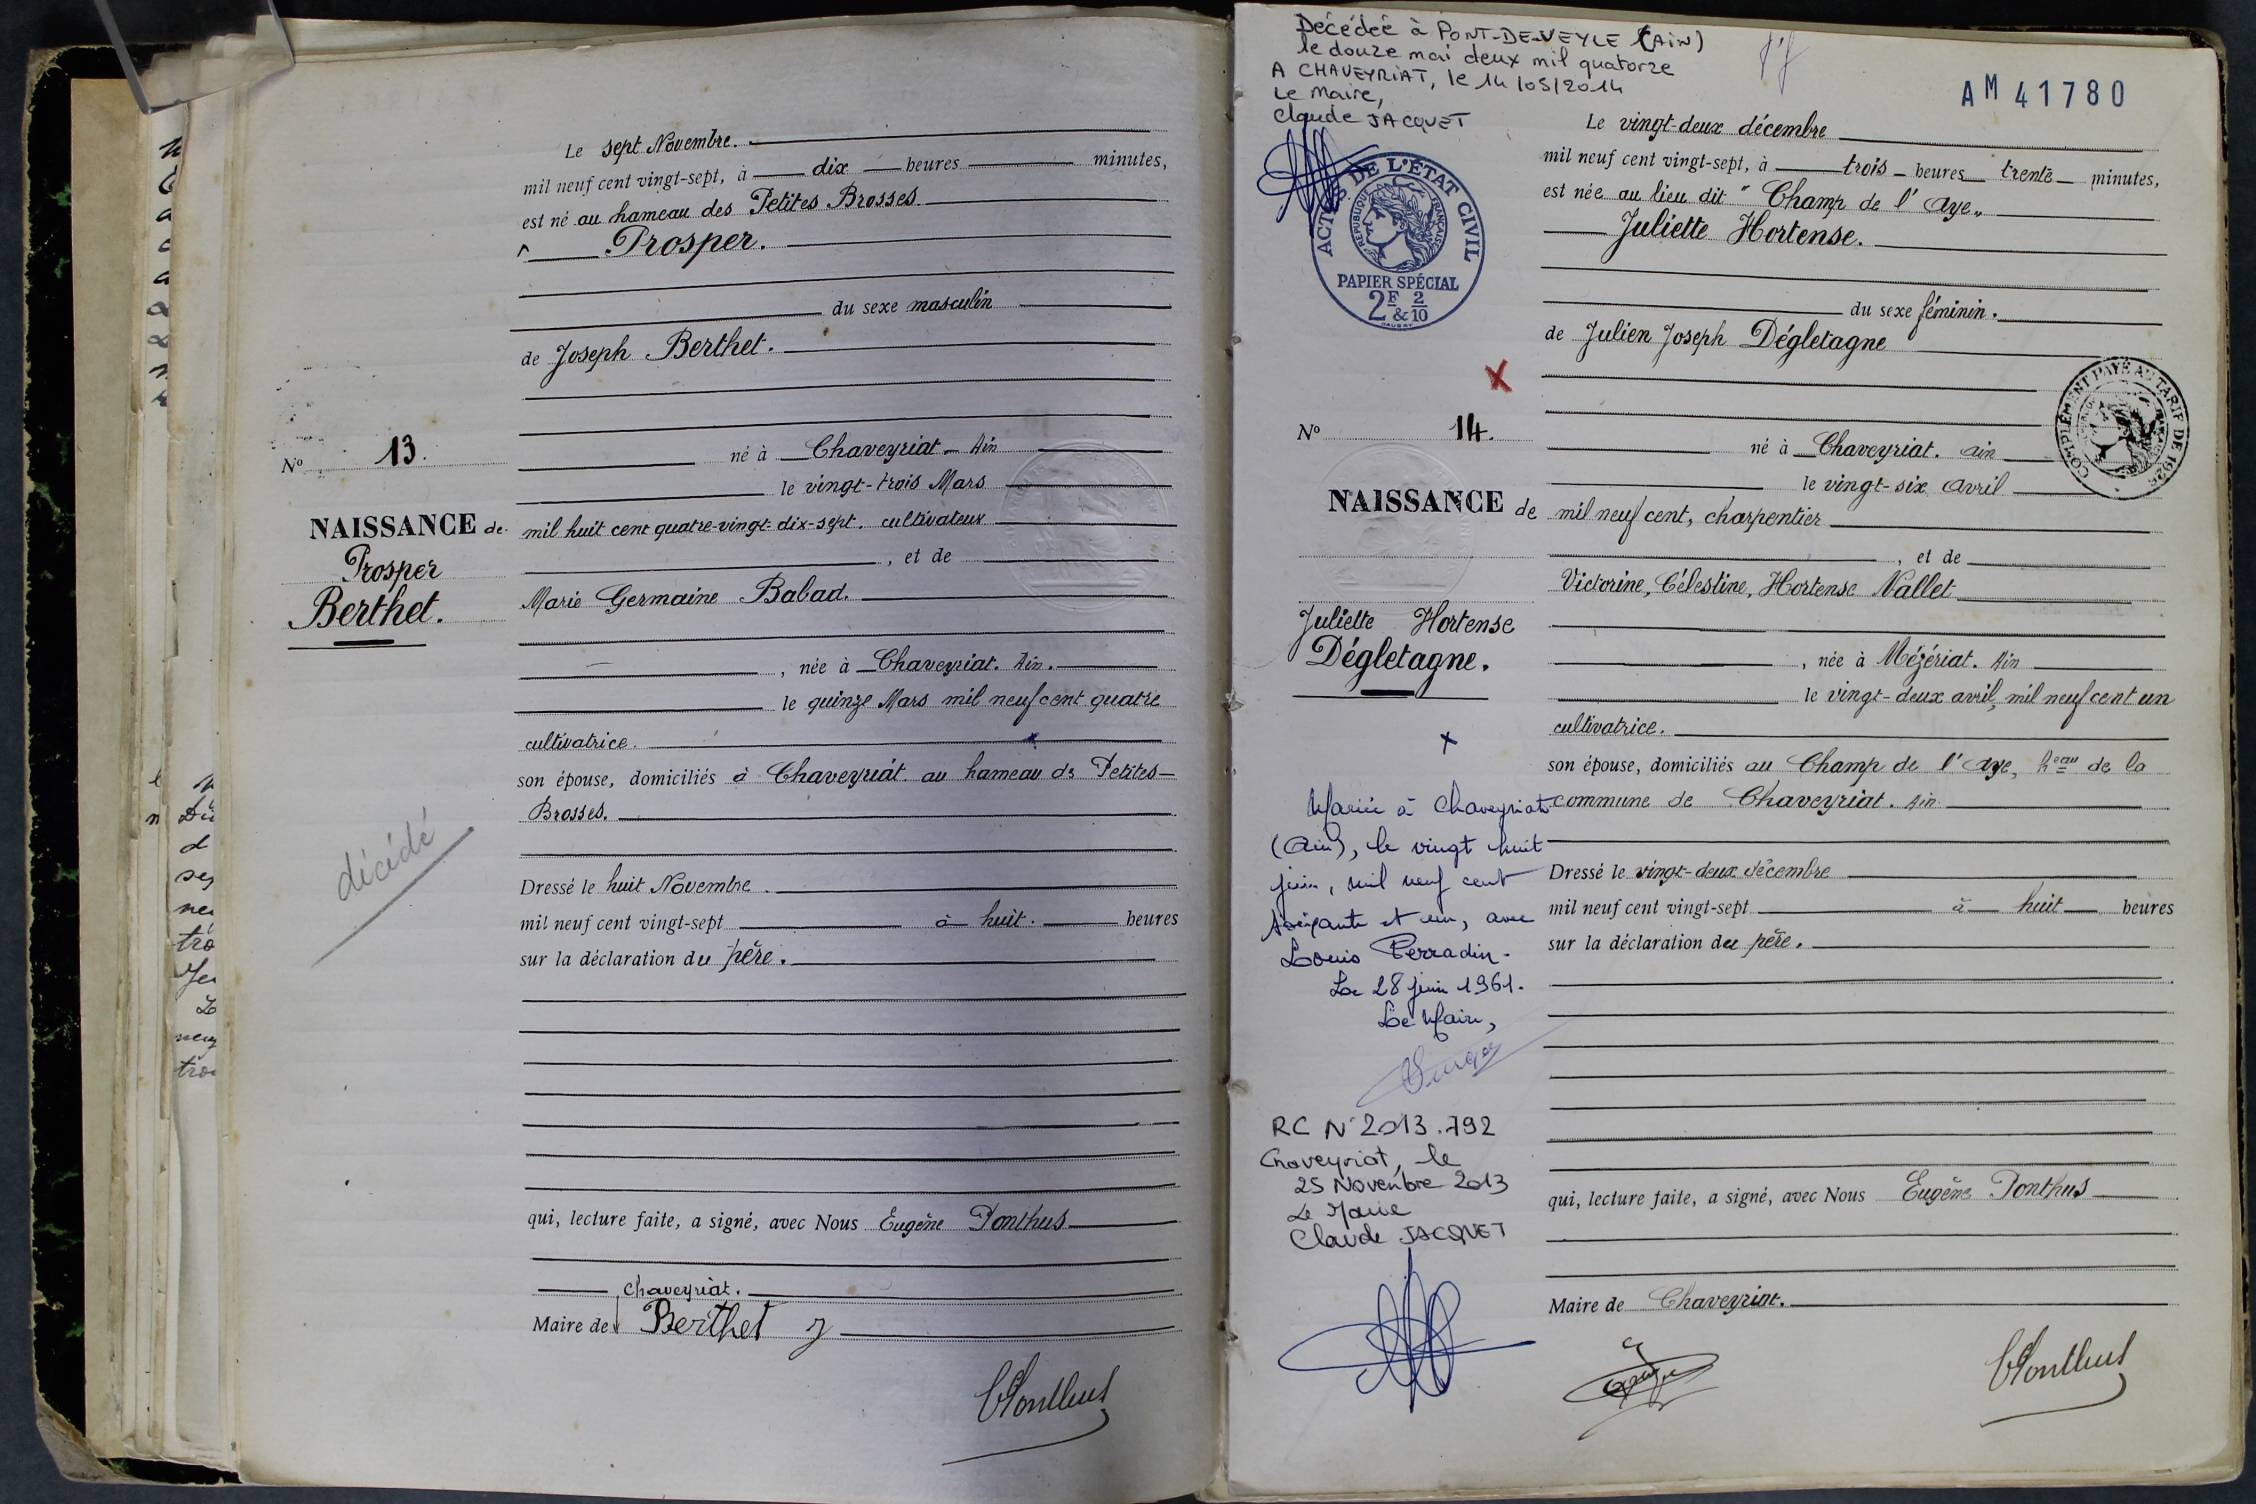 Le sept Novembre.
mil neuf cent vingt-sept, à dix heures minutes,
est né au hameau des Petites Brosses.
Prosper.
du sexe masculin
de Joseph Berthet.
né à Chaveyriat - Ain
le vingt-trois Mars
mil huit cent quatre-vingt-dix-sept. cultivateur
, et de
Marie Germaine Babad.
, née à Chaveyriat. Ain.
le quinze Mars mil neuf cent quatre
cultivatrice.
son épouse, domiciliés à Chaveyriat au hameau des Petites-
Brosses.
Dressé le huit Novembre.
mil neuf cent vingt-sept à huit. heures
sur la déclaration du père.
qui, lecture faite, a signé, avec Nous Eugène Ponthus
Chaveyriat.
Maire de Berthet J
Ponthus
No 13.
NAISSANCE de
Prosper
Berthet.
décédé
Décédée à PONT-DE-VEYLE (AIN)
le douze mai deux mil quatorze
A CHAVEYRIAT, le 14/05/2014
Le Maire,
Claude JACQUET
ACTES DE L'ÉTAT CIVIL
RÉPUBLIQUE FRANÇAISE
PAPIER SPÉCIAL
2F & 2/10
No 14.
NAISSANCE de
Juliette Hortense
Dégletagne.
Mariée à Chaveyriat
(Ain), le vingt huit
juin, mil neuf cent
soixante et un, avec
Louis Perradin.
Le 28 juin 1961.
Le Maire,
RC N° 2013.792
Chaveyriat, le
25 Novembre 2013
Le Maire
Claude JACQUET
AM 41780
Le vingt-deux décembre
mil neuf cent vingt-sept, à trois heures trente minutes,
est née au lieu dit "Champ de l'Aye"
Juliette Hortense.
du sexe féminin.
de Julien Joseph Dégletagne
COMPLÉMENT PAYÉ AU TARIF DE 1926
né à Chaveyriat. Ain
le vingt-six avril
mil neuf cent, charpentier
, et de
Victorine, Célestine, Hortense Nallet
, née à Mézériat. Ain
le vingt-deux avril, mil neuf cent un
cultivatrice.
son épouse, domiciliés au Champ de l'Aye, heau de la
commune de Chaveyriat. Ain
Dressé le vingt-deux décembre
mil neuf cent vingt-sept à huit heures
sur la déclaration du père.
qui, lecture faite, a signé, avec Nous Eugène Ponthus
Maire de Chaveyriat.
Ponthus